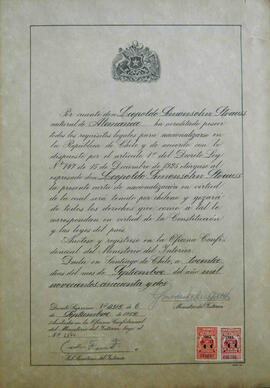 Por cuanto don Leopoldo Simonsohn Strauss
natural de Alemania ha acreditado poseer
todos los requisitos legales para nacionalizarse en
la República de Chile y de acuerdo con lo
dispuesto por el artículo 1º del Decreto Ley
Nº 747 de 15 de Diciembre de 1925 otórgase al
expresado don Leopoldo Simonsohn Strauss
la presente carta de nacionalización en virtud
de la cual será tenido por chileno y gozará
de todos los derechos que como a tal le
correspondan en virtud de la Constitución
y las leyes del país.
Anótese y regístrese en la Oficina Confi-
dencial del Ministerio del Interior.
Dada en Santiago de Chile, a treinta
días del mes de Septiembre del año mil
novecientos cincuenta y dos
Ministro del Interior
Decreto Supremo Nº
de Septiembre de 1952
Anotada en la Oficina Confidencial
del Ministerio del Interior bajo el
Nº